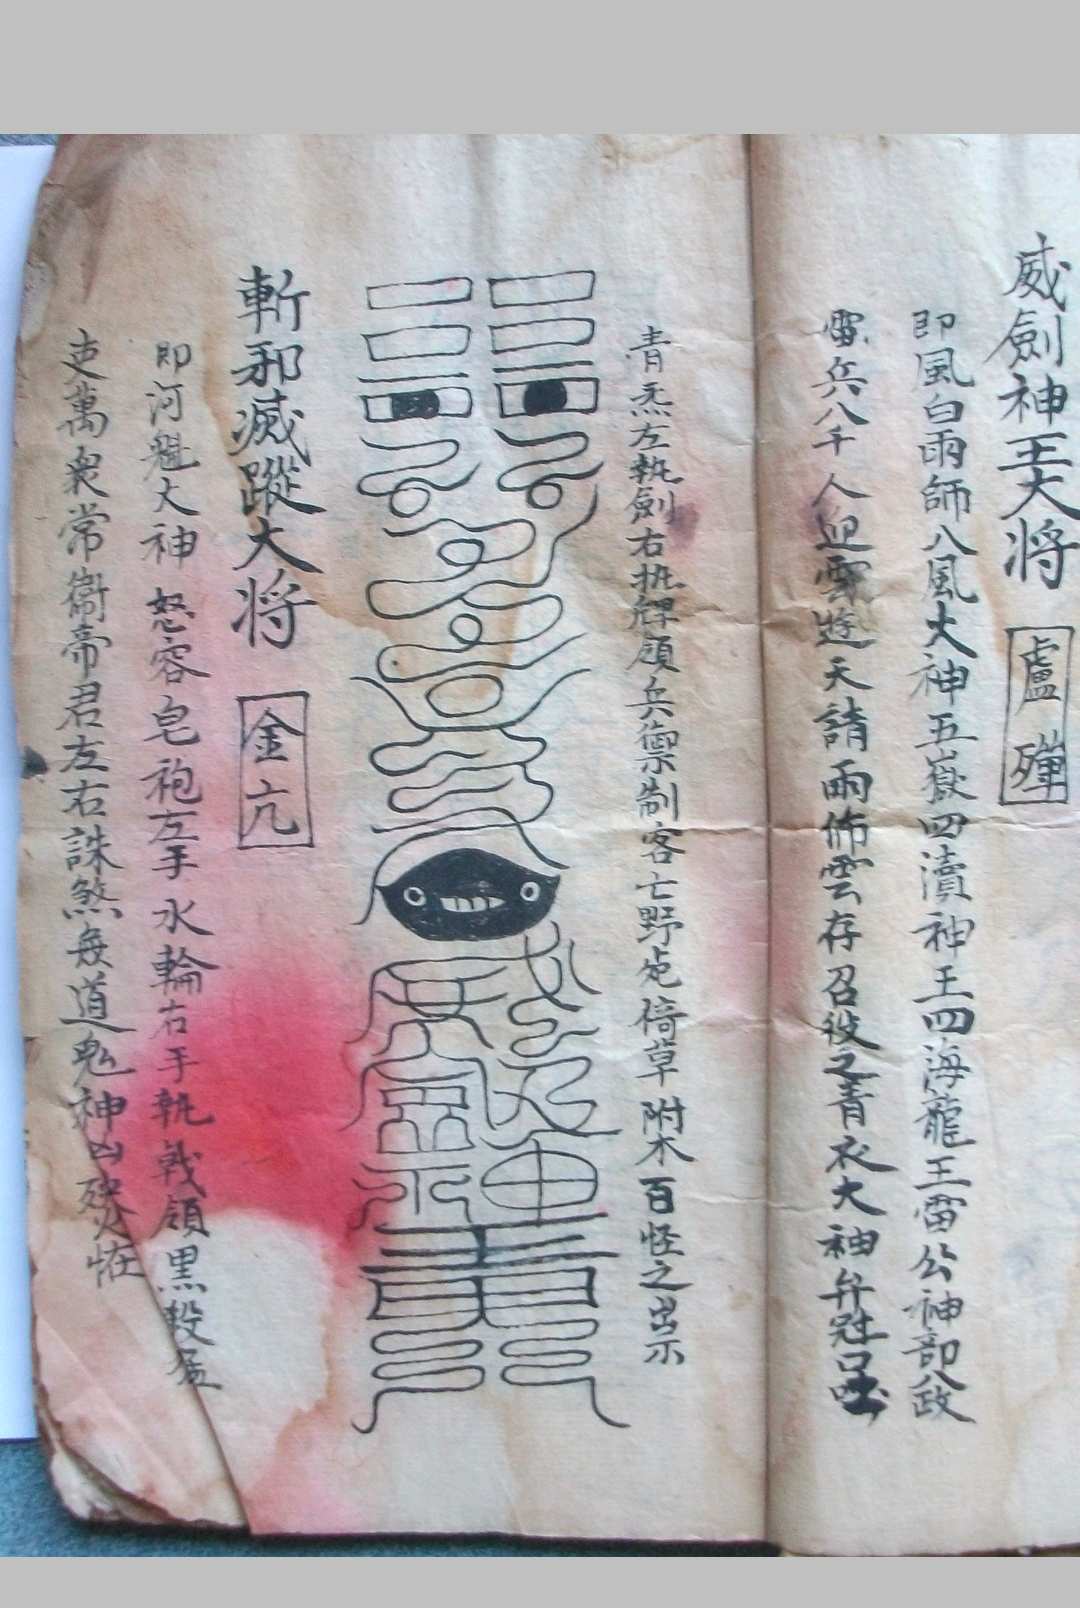 威劍神王大将
盧殫
即風白雨師八風大神五嶽四瀆神王四海龍王雷公神部八政
兵八千人迎雲遊天請雨佈雲存召役之青衣大袖弁冠
青炁左執劍右执領兵禦制客亡野倚草附木百怪之出示
斬邪滅蹤大将
金亢
即河魁大神怒容皂袍左手水輪右手執戟領黑殺孟
吏萬衆常衛帝君左右誅煞無道鬼神凶殃恠